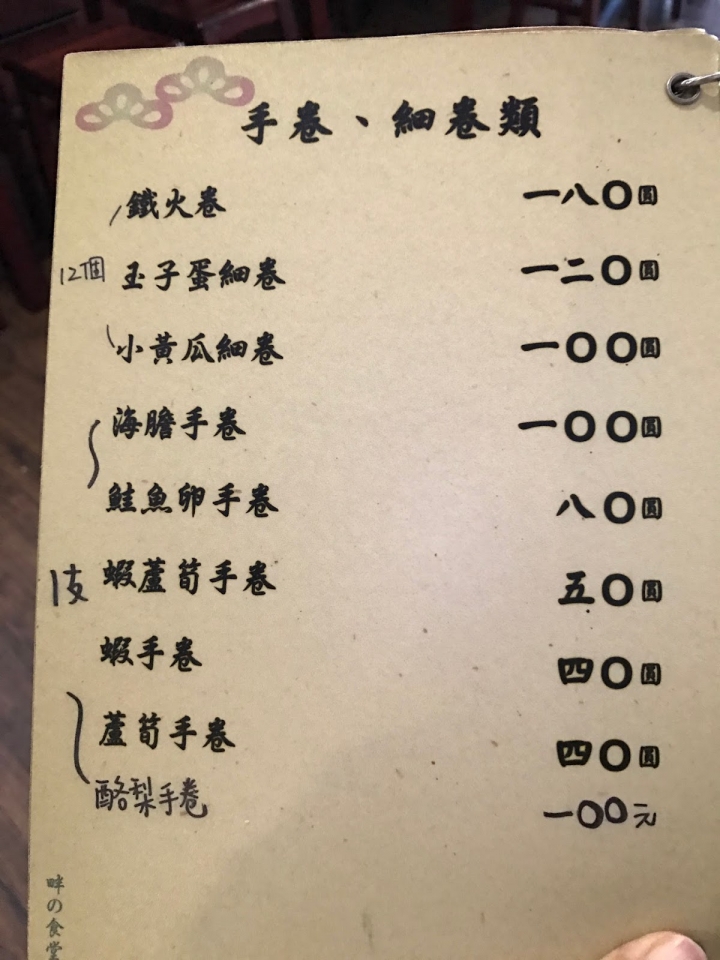 手卷、細卷類
鐵火卷 一八〇圓
12個 玉子蛋細卷 一二〇圓
小黃瓜細卷 一〇〇圓
海膽手卷 一〇〇圓
鮭魚卵手卷 八〇圓
1支 蝦蘆筍手卷 五〇圓
蝦手卷 四〇圓
蘆筍手卷 四〇圓
酪梨手卷 一〇〇元
畔の食堂